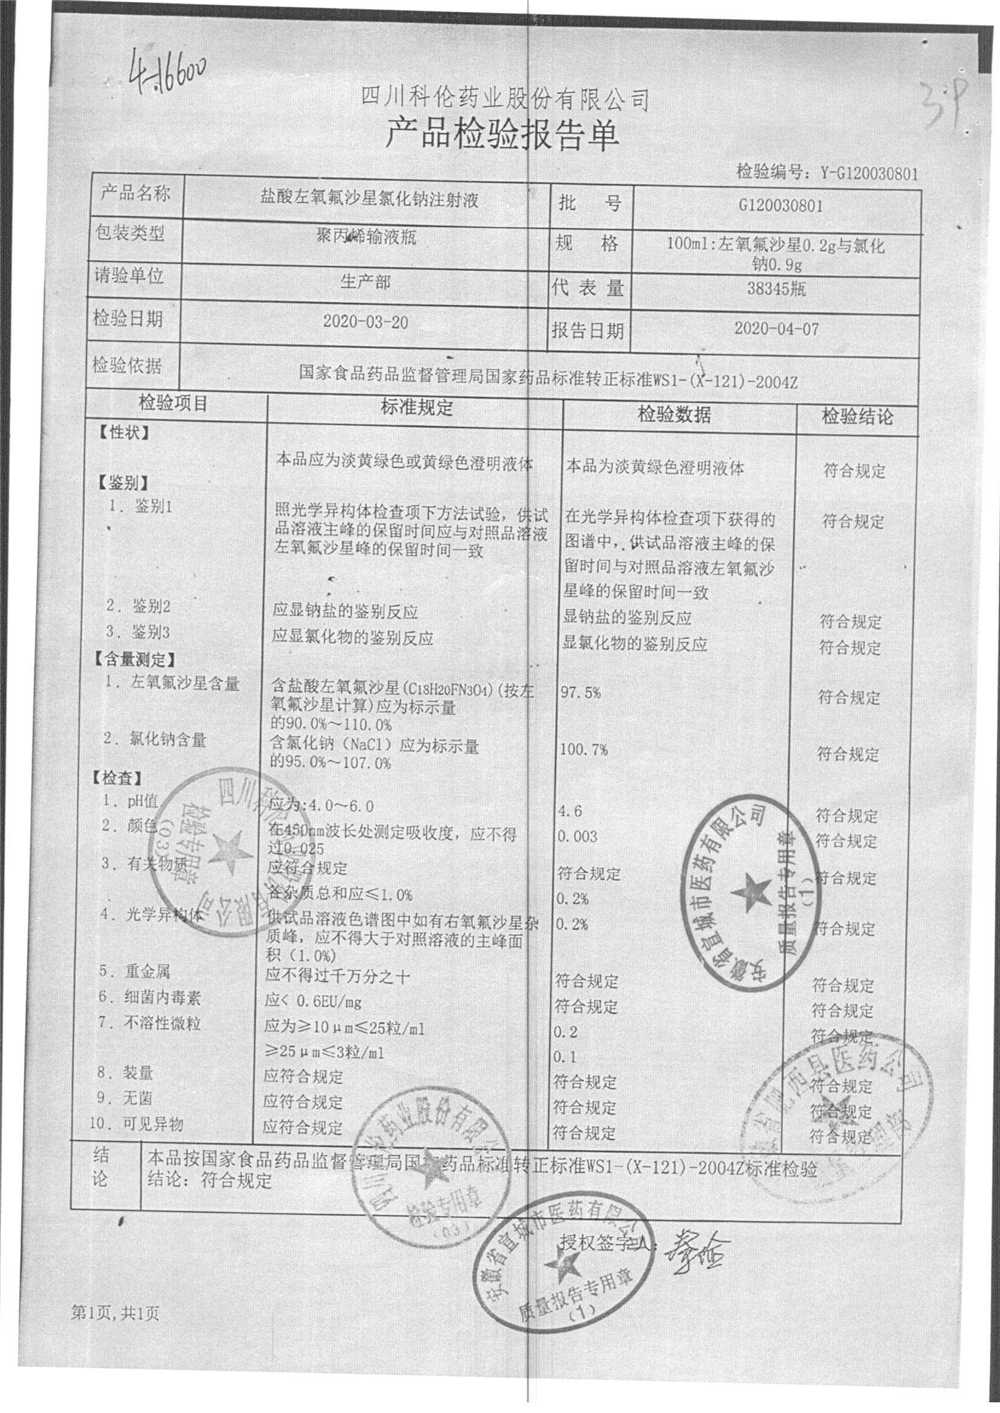 4.16600
3P
四川科伦药业股份有限公司
产品检验报告单
检验编号: Y-G120030801
产品名称 盐酸左氧氟沙星氯化钠注射液 批 号 G120030801
包装类型 聚丙烯输液瓶 规 格 100ml:左氧氟沙星0.2g与氯化
钠0.9g
请验单位 生产部 代 表 量 38345瓶
检验日期 2020-03-20 报告日期 2020-04-07
检验依据 国家食品药品监督管理局国家药品标准转正标准WS1-(X-121)-2004Z
检验项目 标准规定 检验数据 检验结论
【性状】
本品应为淡黄绿色或黄绿色澄明液体 本品为淡黄绿色澄明液体 符合规定
【鉴别】
1. 鉴别1 照光学异构体检查项下方法试验, 供试 在光学异构体检查项下获得的 符合规定
品溶液主峰的保留时间应与对照品溶液 图谱中, 供试品溶液主峰的保
左氧氟沙星峰的保留时间一致 留时间与对照品溶液左氧氟沙
星峰的保留时间一致
2. 鉴别2 应显钠盐的鉴别反应 显钠盐的鉴别反应 符合规定
3. 鉴别3 应显氯化物的鉴别反应 显氯化物的鉴别反应 符合规定
【含量测定】
1. 左氧氟沙星含量 含盐酸左氧氟沙星(C18H20FN3O4)(按左 97.5% 符合规定
氧氟沙星计算)应为标示量
的90.0%～110.0%
2. 氯化钠含量 含氯化钠（NaCl）应为标示量 100.7% 符合规定
的95.0%～107.0%
【检查】
1. pH值 应为:4.0～6.0 4.6 符合规定
2. 颜色 在450nm波长处测定吸收度, 应不得 0.003 符合规定
过0.025
3. 有关物质 应符合规定 符合规定 符合规定
各杂质总和应≤1.0% 0.2%
4. 光学异构体 供试品溶液色谱图中如有右氧氟沙星杂 0.2% 符合规定
质峰, 应不得大于对照溶液的主峰面
积（1.0%）
5. 重金属 应不得过千万分之十 符合规定 符合规定
6. 细菌内毒素 应< 0.6EU/mg 符合规定 符合规定
7. 不溶性微粒 应为≥10μm≤25粒/ml 0.2 符合规定
≥25μm≤3粒/ml 0.1
8. 装量 应符合规定 符合规定 符合规定
9. 无菌 应符合规定 符合规定 符合规定
10. 可见异物 应符合规定 符合规定 符合规定
结论 本品按国家食品药品监督管理局国家药品标准转正标准WS1-(X-121)-2004Z标准检验
结论: 符合规定
授权签字人:
第1页, 共1页
四川科伦药业股份有限公司
检验专用章
(03)
安徽省宣城市医药有限公司
质量报告专用章
(1)
四川科伦药业股份有限公司
检验专用章
(03)
安徽省宣城市医药有限公司
质量报告专用章
(1)